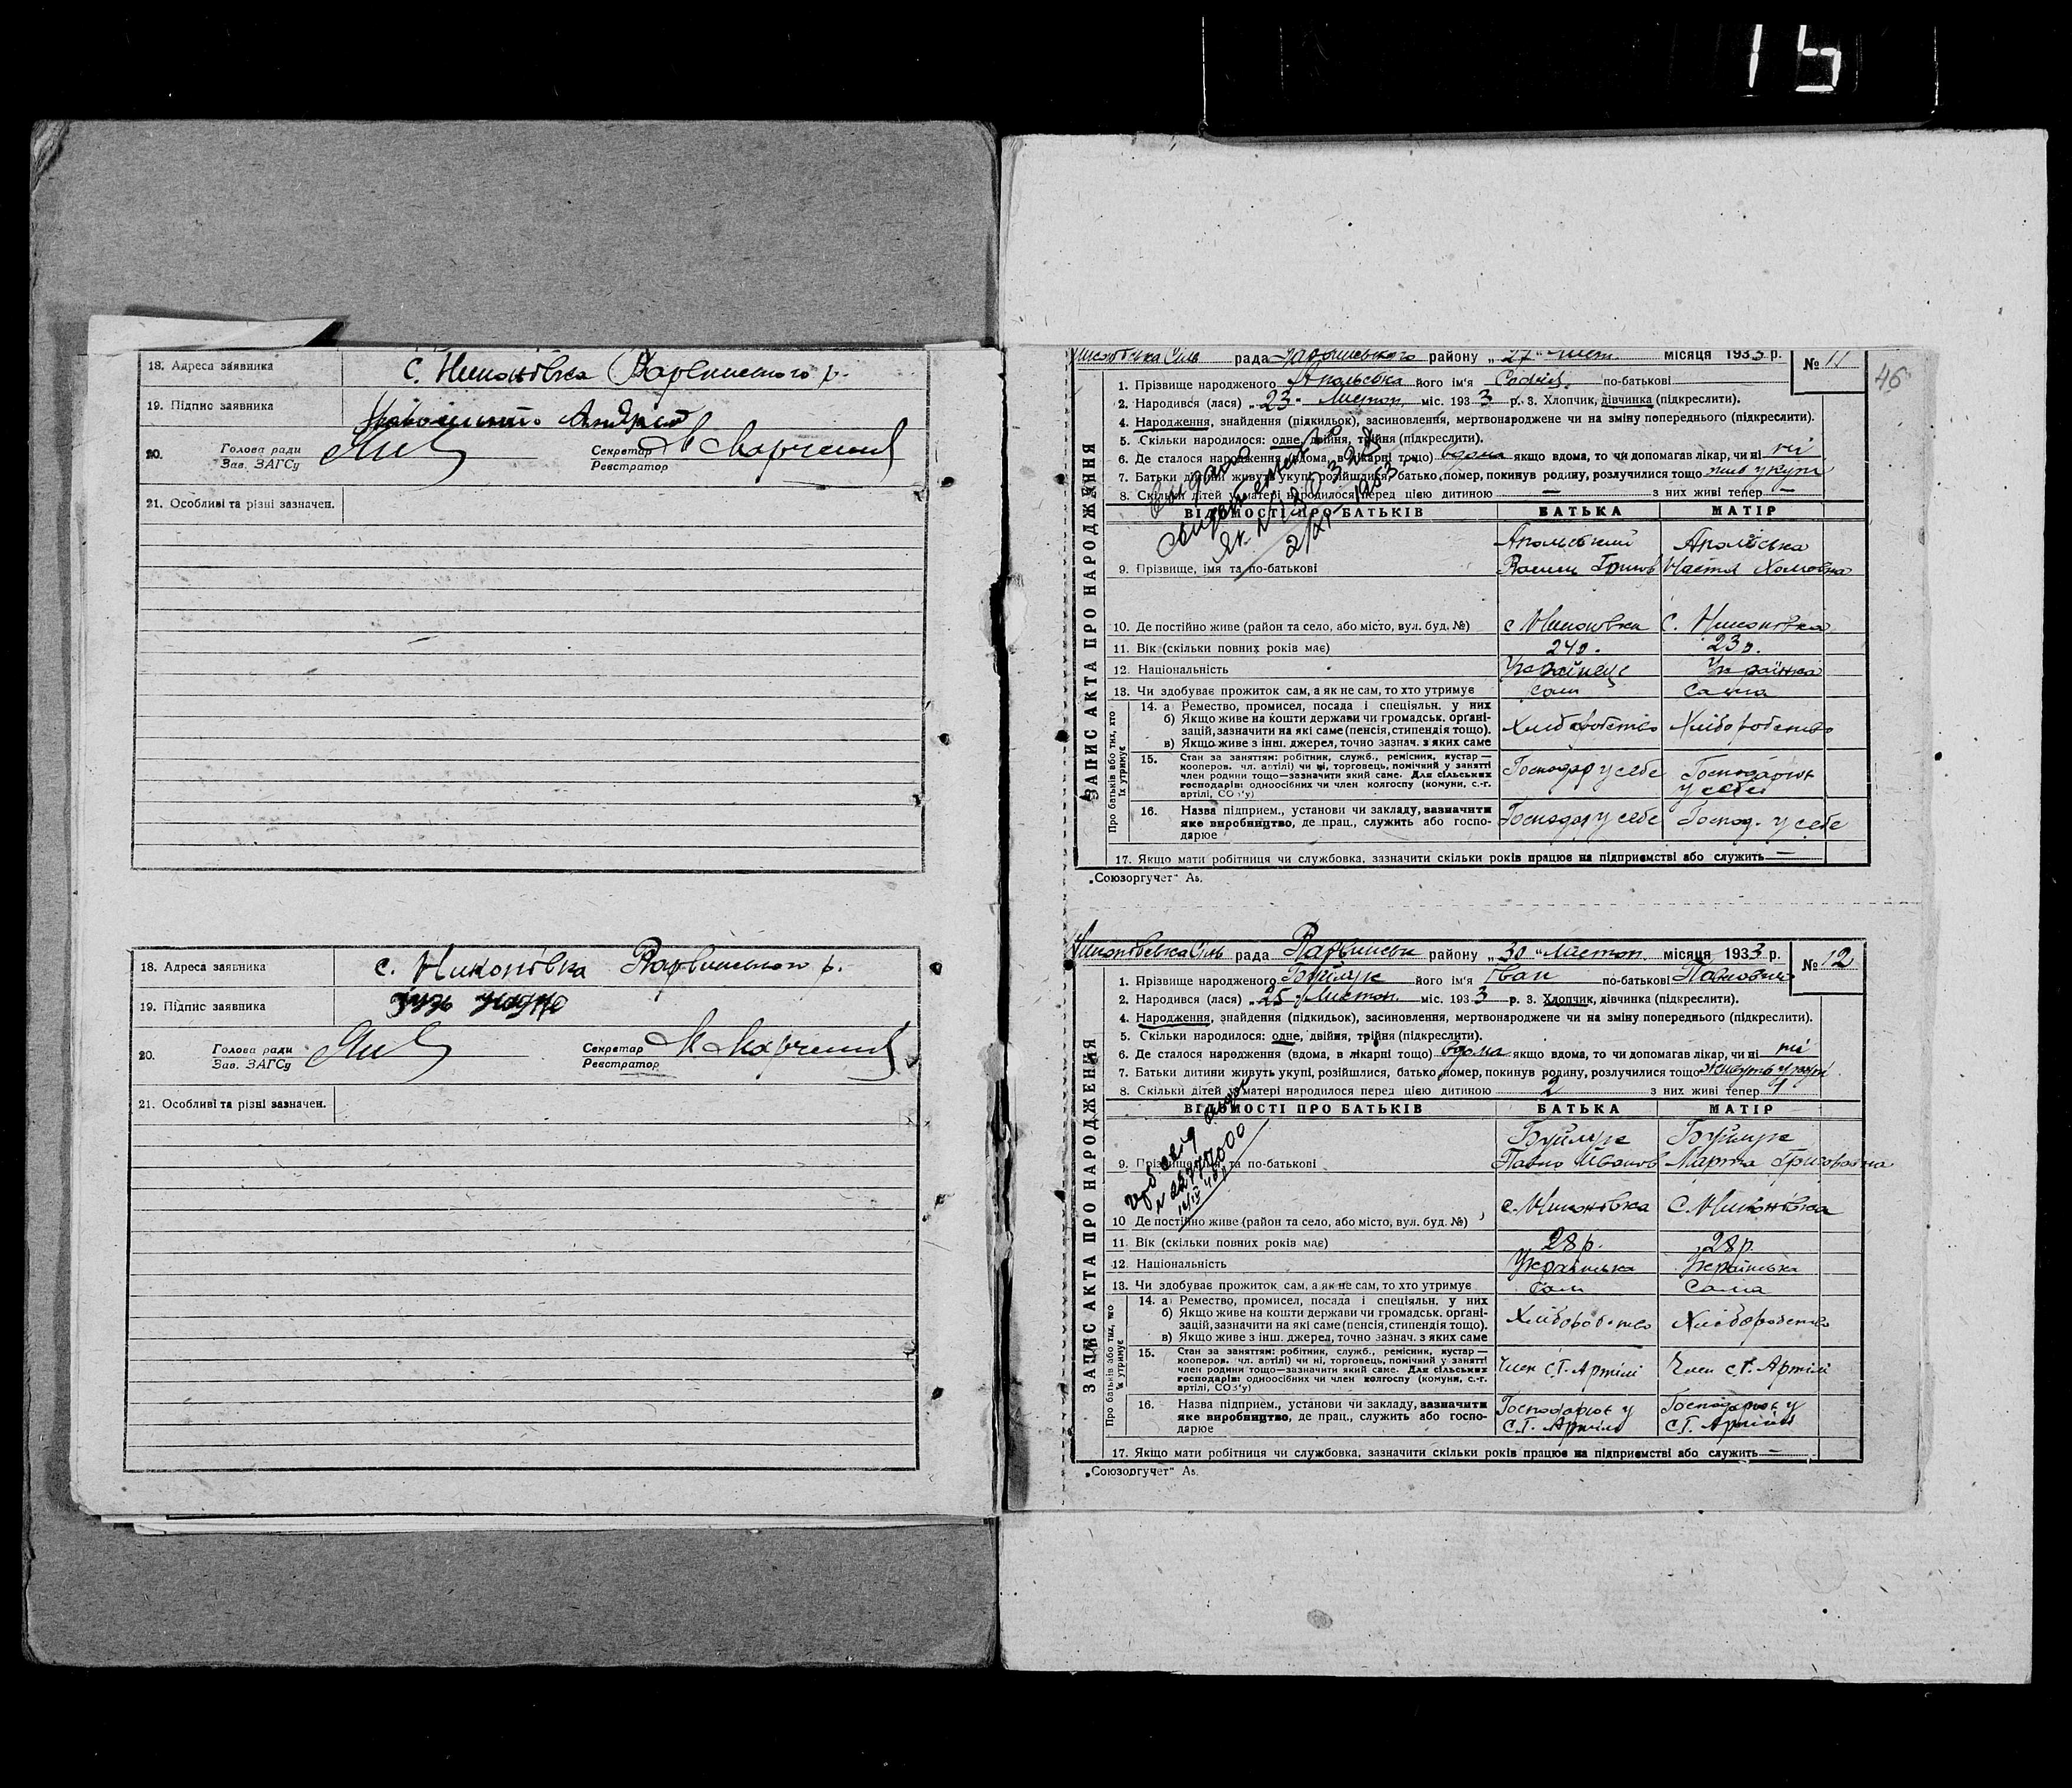 15
18. Адреса заявника с. Никонівка Варвинського р.
19. Підпис заявника
20. Голова ради Секретар
Зав. ЗАГСу Реєстратор
21. Особливі та різні зазначен.
18. Адреса заявника с. Никонівка Варвинського р.
19. Підпис заявника
20. Голова ради Секретар
Зав. ЗАГСу Реєстратор
21. Особливі та різні зазначен.
46
рада району „27“ Лист. місяця 1933 р. № 11
1. Прізвище народженого його ім'я по-батькові
2. Народився (лася) „23“ Листоп. міс. 1933 р. 3. Хлопчик, дівчинка (підкреслити).
4. Народження, знайдення (підкидьок), засиновлення, мертвонароджене чи на зміну попереднього (підкреслити).
5. Скільки народилося: одне, двійня, трійня (підкреслити).
6. Де сталося народження (вдома, в лікарні тощо) вдома якщо вдома, то чи допомагав лікар, чи ні ні
7. Батьки дитини живуть укупі, розійшлися, батько помер, покинув родину, розлучилися тощо жив укупі
8. Скільки дітей у матері народилося перед цією дитиною — з них живі тепер —
ЗАПИС АКТА ПРО НАРОДЖЕННЯ
ВІДОМОСТІ ПРО БАТЬКІВ БАТЬКА МАТІР
9. Прізвище, імя та по-батькові
10. Де постійно живе (район та село, або місто, вул. буд. №) с Никонівка с. Никонівка
11. Вік (скільки повних років має) 24 р. 23 р.
12. Національність Українець Українка
13. Чи здобуває прожиток сам, а як не сам, то хто утримує сам сама
Про батьків або тих, хто їх утримує
14. а) Ремество, промисел, посада і спеціяльн. у них
б) Якщо живе на кошти держави чи громадськ. органі-
зацій, зазначити на які саме (пенсія, стипендія тощо). Хліборобство Хліборобство
в) Якщо живе з інш. джерел, точно зазнач. з яких саме
15. Стан за заняттям: робітник, служб., ремісник, кустар —
кооперов. чл. артілі) чи ні, торговець, помічний у занятті
член родини тощо—зазначити який саме. Для сільських
господарів: одноосібних чи член колгоспу (комуни, с.-г.
артілі, СОЗ'у) Господар у себе Господарює у себе
16. Назва підприєм., установи чи закладу, зазначити
яке виробництво, де прац., служить або госпо-
дарює Господар у себе Господ. у себе
17. Якщо мати робітниця чи службовка, зазначити скільки років працює на підприємстві або служить —
„Союзоргучет“ Аs.
рада району „30“ Листоп. місяця 1933 р. № 12
1. Прізвище народженого його ім'я Іван по-батькові Павлович
2. Народився (лася) „25“ Листоп. міс. 1933 р. 3. Хлопчик, дівчинка (підкреслити).
4. Народження, знайдення (підкидьок), засиновлення, мертвонароджене чи на зміну попереднього (підкреслити).
5. Скільки народилося: одне, двійня, трійня (підкреслити).
6. Де сталося народження (вдома, в лікарні тощо) вдома якщо вдома, то чи допомагав лікар, чи ні ні
7. Батьки дитини живуть укупі, розійшлися, батько помер, покинув родину, розлучилися тощо живуть укупі
8. Скільки дітей у матері народилося перед цією дитиною 2 з них живі тепер 1
ЗАПИС АКТА ПРО НАРОДЖЕННЯ
ВІДОМОСТІ ПРО БАТЬКІВ БАТЬКА МАТІР
9. Прізвище, імя та по-батькові
10 Де постійно живе (район та село, або місто, вул. буд. №) с. Никонівка с. Никонівка
11. Вік (скільки повних років має) 28 р. 28 р.
12. Національність Українська Українська
13. Чи здобуває прожиток сам, а як не сам, то хто утримує сам сама
Про батьків або тих, що їх утримує
14. а) Ремество, промисел, посада і спеціяльн. у них
б) Якщо живе на кошти держави чи громадськ. органі-
зацій, зазначити на які саме (пенсія, стипендія тощо). Хліборобство Хліборобство
в) Якщо живе з інш. джерел, точно зазнач. з яких саме
15. Стан за заняттям: робітник, служб., ремісник, кустар —
кооперов. чл. артілі) чи ні, торговець, помічний у занятті
член родини тощо—зазначити який саме. Для сільських
господарів: одноосібних чи член колгоспу (комуни, с.-г.
артілі, СОЗ'у) Член С.Г. Артілі Член С.Г. Артілі
16. Назва підприєм., установи чи закладу, зазначити
яке виробництво, де прац., служить або госпо-
дарює Господарює у С.Г. Артілі Господарює у С.Г. Артілі
17. Якщо мати робітниця чи службовка, зазначити скільки років працює на підприємстві або служить —
„Союзоргучет“ Аs.